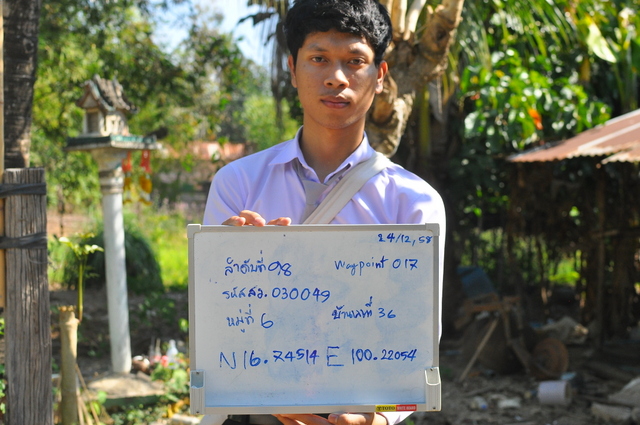 24/12, 58
ลำดับที่ 98 waypoint 017
รหัสสว. 030049
หมู่ที่ 6 บ้านเลขที่ 36
N 16.74514 E 100.22054